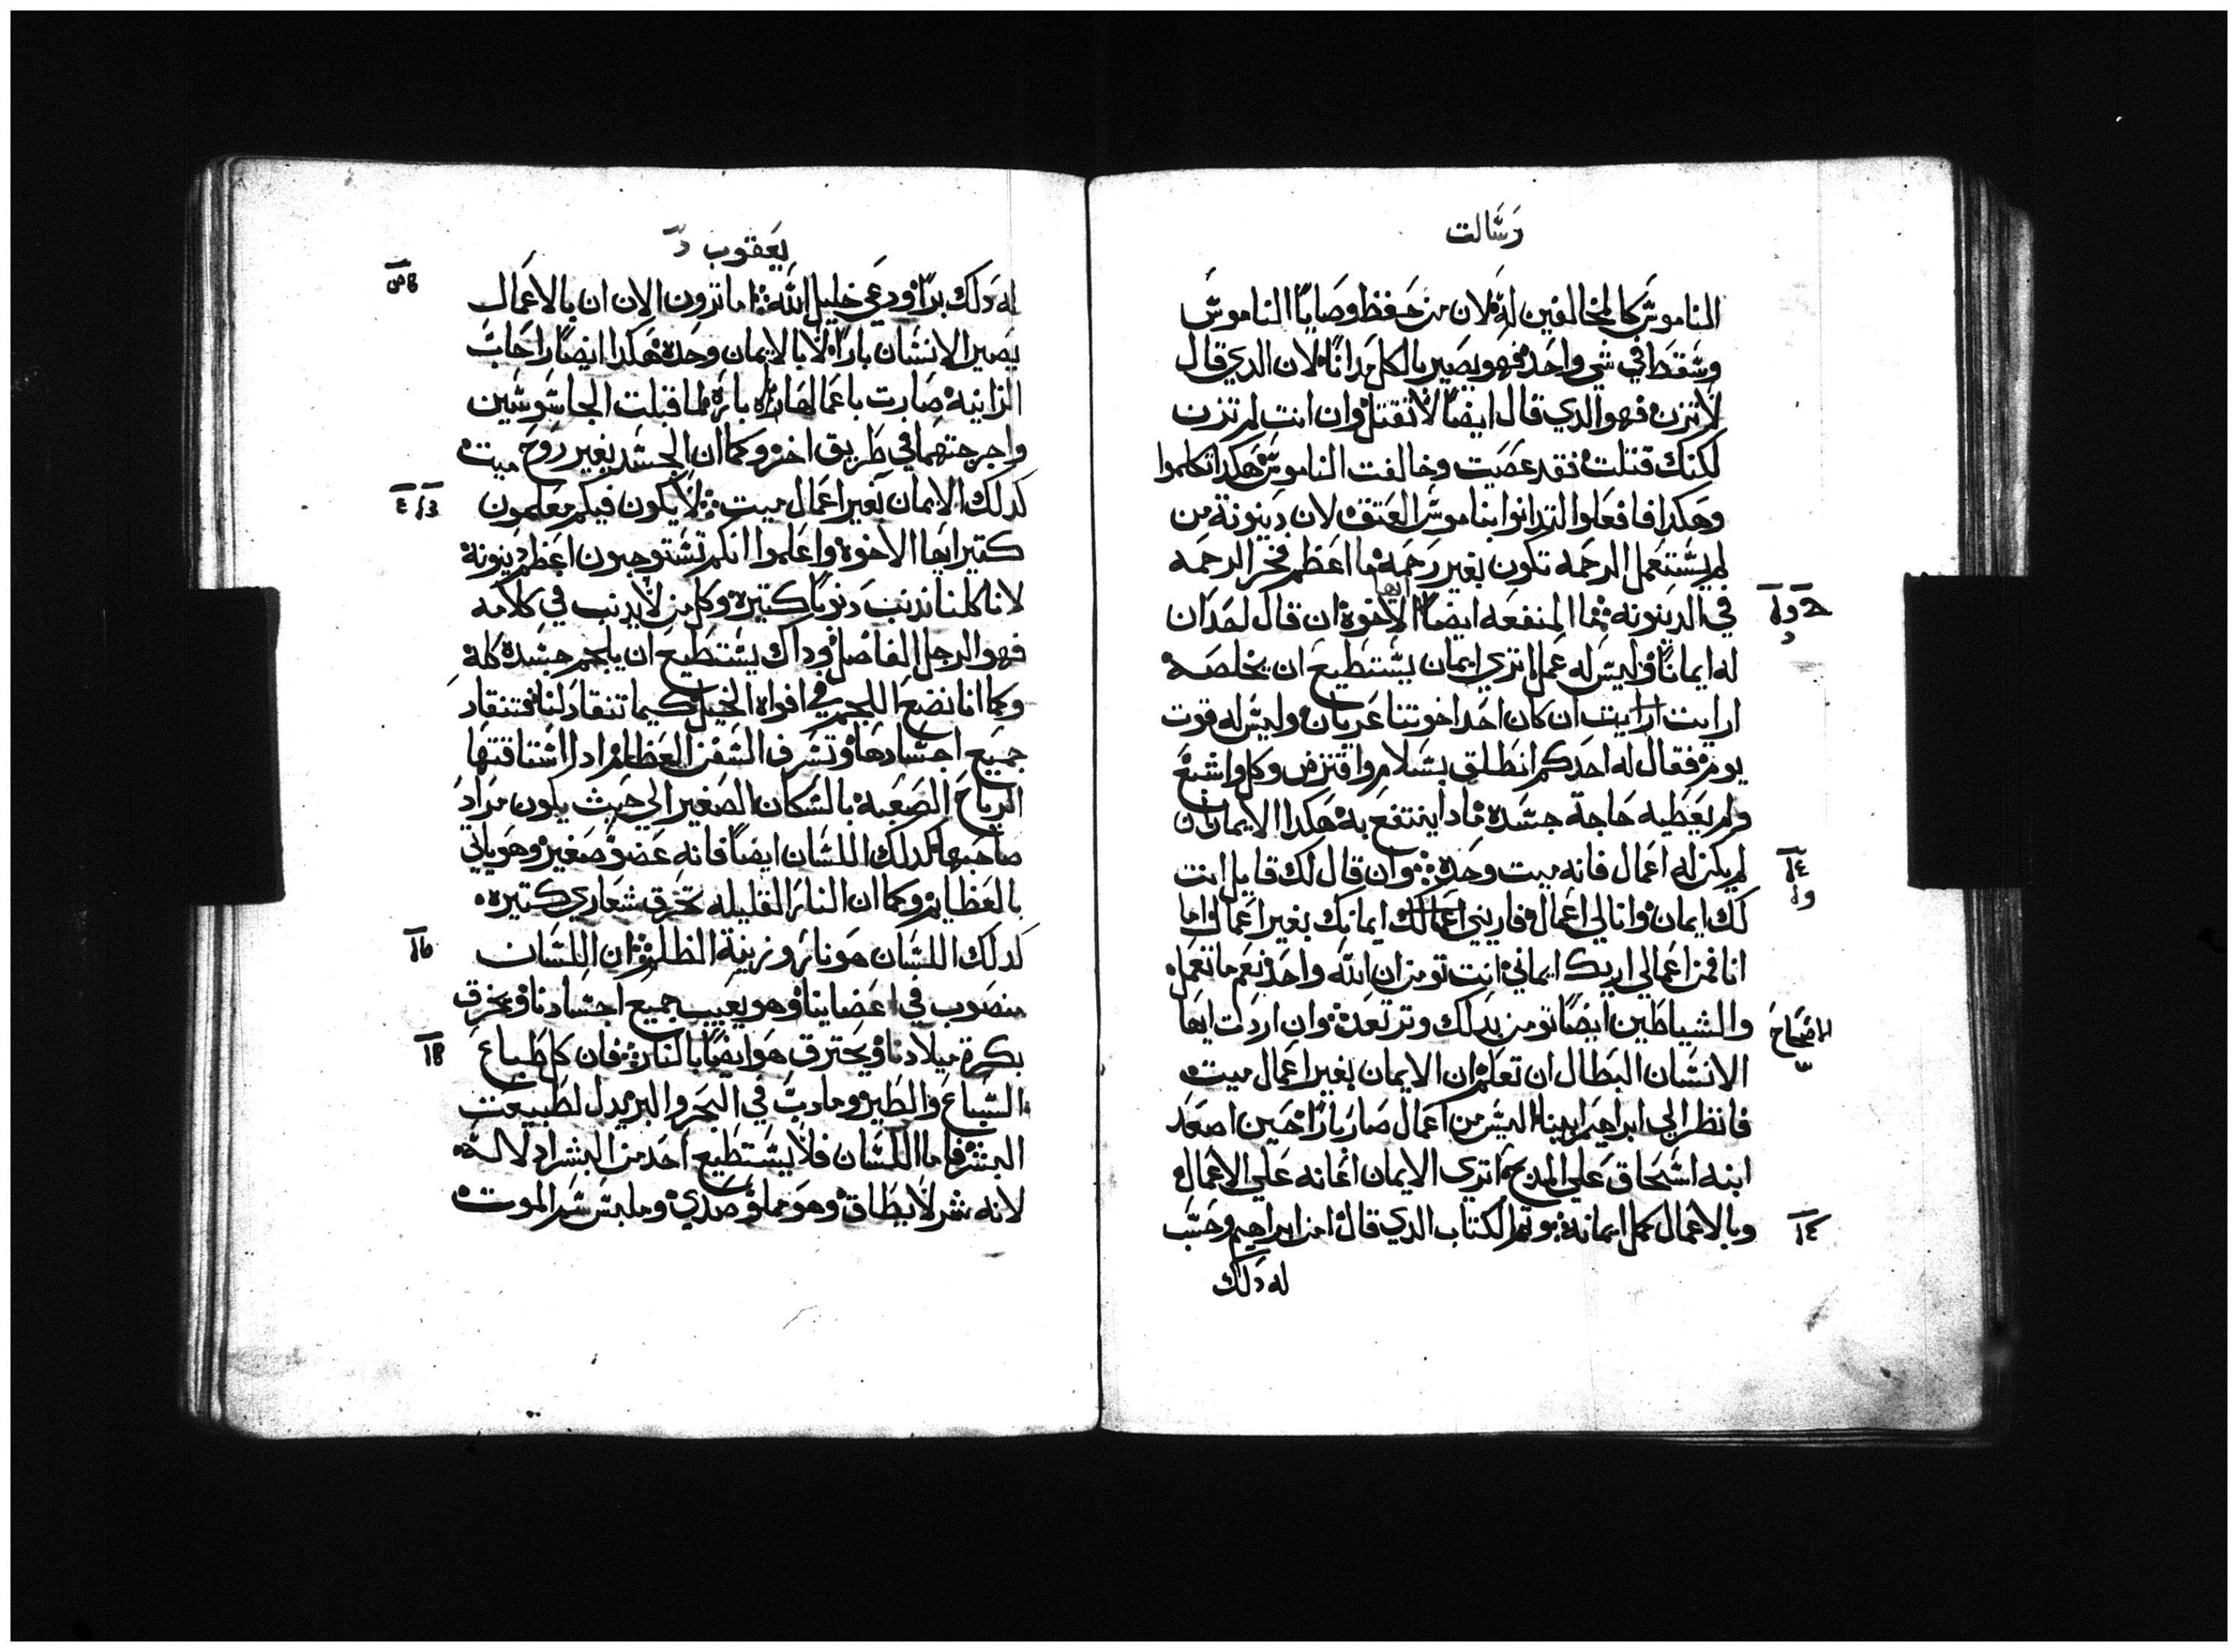 رسالت
الناموس كالمخالفين له لان من حفظ وصايا الناموس
وسقط في شي واحد فهو يصير بالكل مدانا لان الدي قال
لا تزن فهو الدي قال ايضا لا تقتل وان انت لم تزن
لكنك قتلت فقد عصيت وخالفت الناموس هكدا تكلموا
وهكدا فافعلوا لتدانوا بناموس العتق لان دينونة من
لم يستعمل الرحمه تكون بغير رحمة ما اعظم فخر الرحمه
في الدينونه فما المنفعه ايضا ايها الاخوة ان قال احد ان
له ايمانا وليس له عمل اتري ايمان يستطيع ان يخلصه
ارايت ارايت ان كان احد اخوتنا عريان وليس له قوت
يوم فقال له احدكم انطلق بسلام واقتزض وكل واشبع
ولم يعطيه حاجة جسده مادا ينتفع به هكدا الايمان ان
لم يكن له اعمال فانه ميت وحده وان قال لك قايل انت
لك ايمان وانا لي اعمال فاريني اعمالك ايمانك بغير اعمال واما
انا فمن اعمالي اريك ايماني انت تومن ان الله واحد نعم ما تعمل
والشياطين ايضا تومن بدلك وترتعد وان اردت ايها
الانسان البطال ان تعلم ان الايمان بغير اعمال ميت
فانظر الي ابراهيم ابينا اليس من اعمال صار بارا حين اصعد
ابنه اسحاق علي المدبح اتري الايمان اعانه علي الاعمال
وبالاعمال كمل ايمانه وتم الكتاب الدي قال امن ابراهيم وحسب
له دلك
يعقوب
له دلك برا ودعي خليل الله اما ترون الان ان بالاعمال
يصير الانسان بارا لا بالايمان وحده هكدا ايضا راحاب
الزانيه صارت باعمالها بارة لما قبلت الجاسوسين
واخرجتهما في طريق اخر وكما ان الجسد بغير روح ميت
كدلك الايمان بغير اعمال ميت لا يكون فيكم معلمون
كتير ايها الاخوة واعلموا انكم تستوجبون اعظم دينونة
لانا كلنا ندنب دنوبا كتيرة وكل من لا يدنب في كلامه
فهو الرجل الفاضل وداك يستطيع ان يلجم جسده كله
وكما انا نضع اللجم في افواه الخيل كيما تنقاد لنا فتنقاد
جميع اجسادها وتسرف السفن العظام ادا اشتاقتها
الرياح الصعبة بالسكان الصغير الي حيث يكون مراد
صاحبها كدلك اللسان ايضا فانه عضو صغير وهو ياتي
بالعظايم وكما ان النار القليله تحرق شعاري كتيره
كدلك اللسان هو نار وزينة الظلم ان اللسان
منصوب في اعضاينا وهو يعيب جميع اجسادنا ويحرق
بكرة ميلادنا ويحترق هو ايضا بالنار فان كل طباع
السباع والطير وما دب في البحر والبر يدل لطبيعت
البشر فاما اللسان فلا يستطيع احد من البشر ادلاله
لانه شر لا يطاق وهو مملو صدي وملبس سم الموت